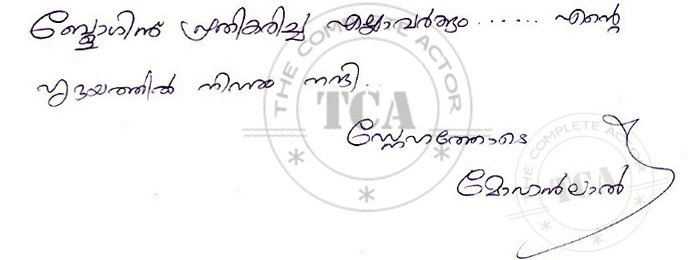 ബ്ലോഗിന് പ്രതികരിച്ച എല്ലാവർക്കും...... എന്റെ
ഹൃദയത്തിൽ നിന്നും നന്ദി..
സ്നേഹത്തോടെ
മോഹൻലാൽ
THE COMPLETE ACTOR
TCA
THE COMPLETE ACTOR
TCA